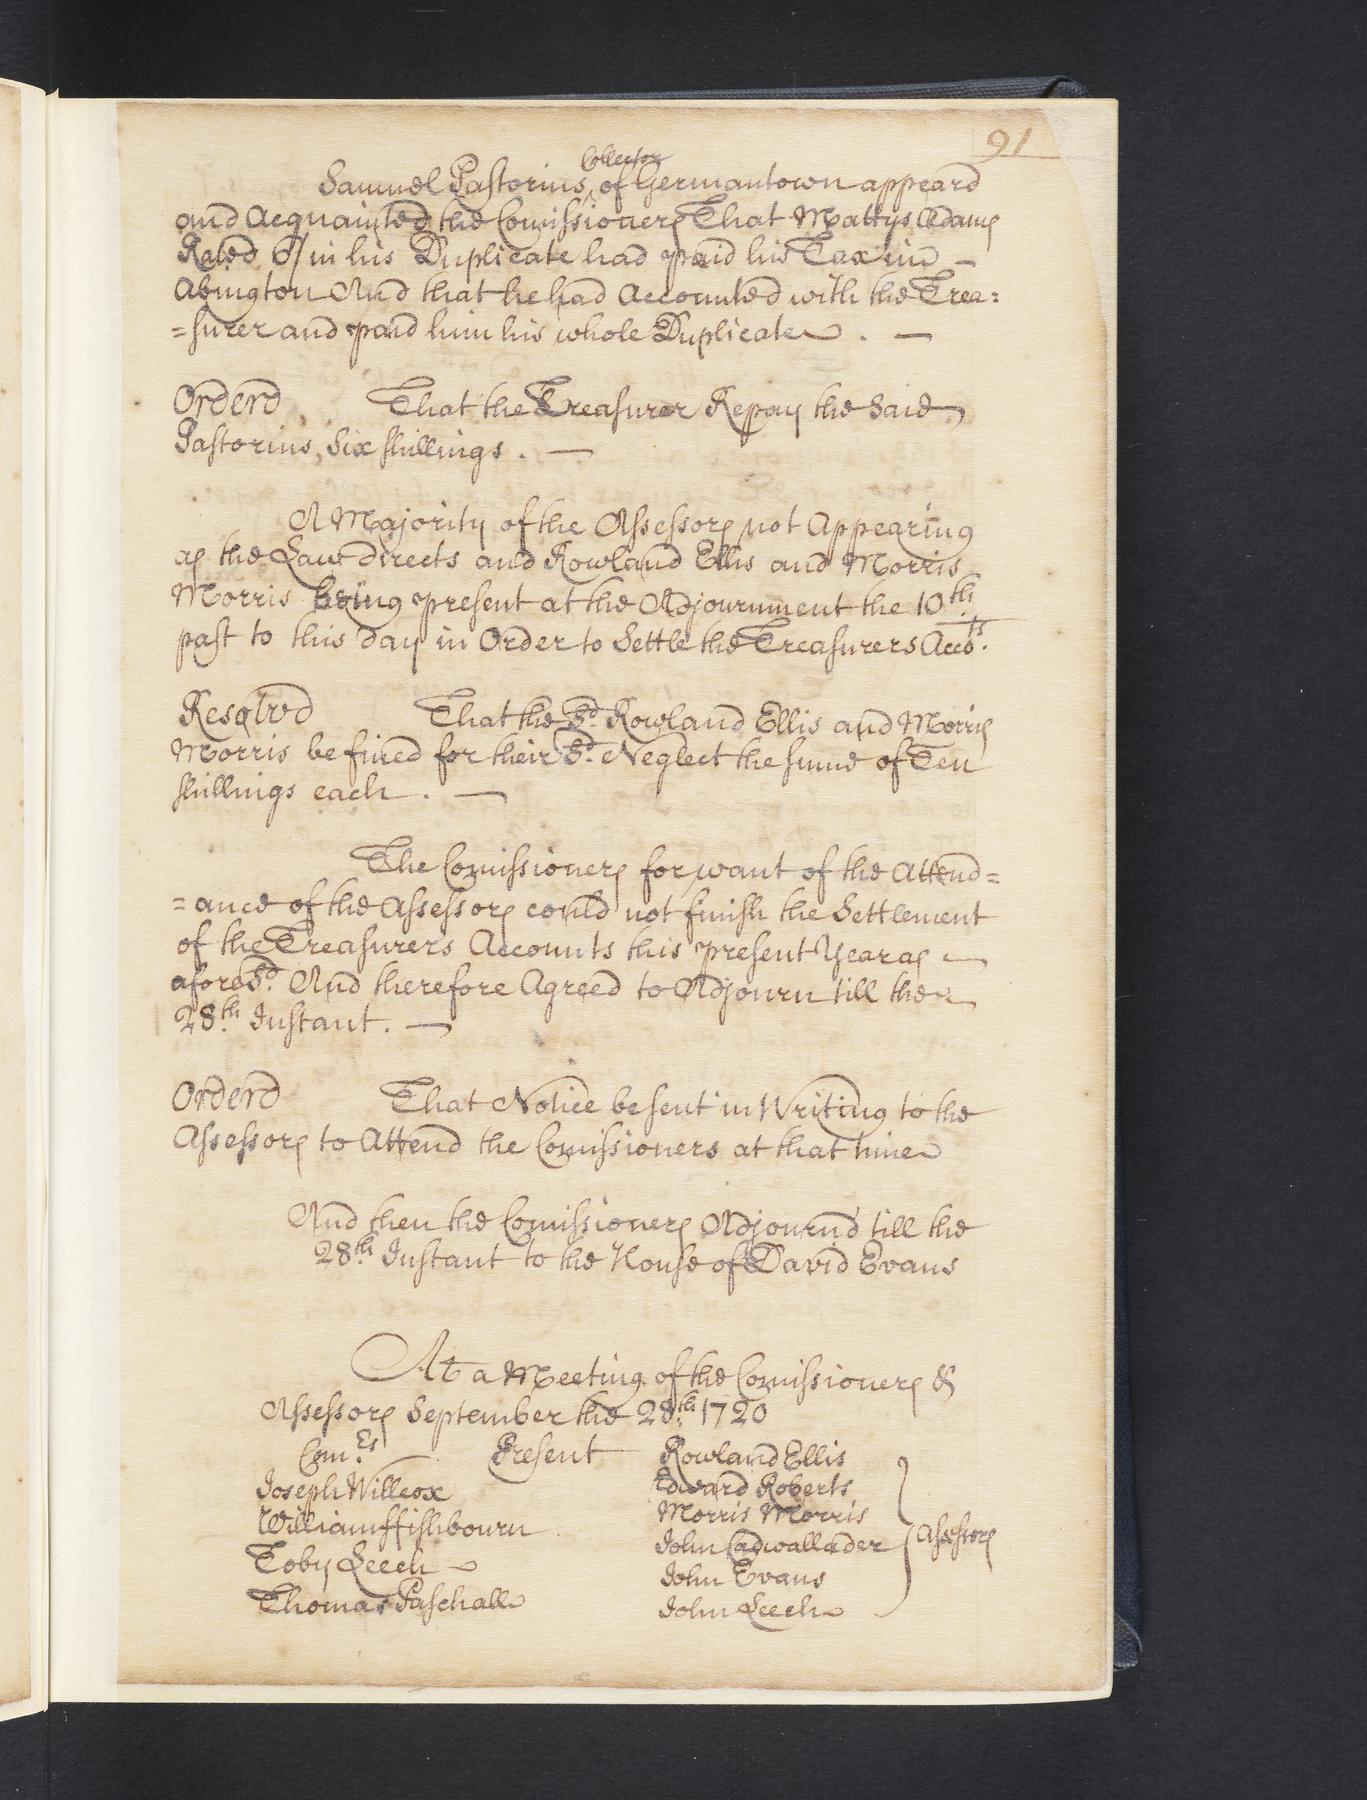 91
Collector
Samuel Pastorius, of Germantown appeard
and Acquainted the Comissioners That Mattys Adams
Rated 6/ in his Duplicate had paid his Tax in —
Abington And that he had Accounted with the Trea=
=surer and paid him his whole Duplicate . —
Orderd That the Treasurer Repay the Said
Pastorius, Six shillings . —
A Majority of the Assessors not Appearing
as the Law directs and Rowland Ellis and Morris
Morris being present at the Adjournment the 10th
past to this day in Order to Settle the Treasurers Acco.ts
Resolvd That the Sd. Rowland Ellis and Morris
Morris be fined for their Sd. Neglect the sume of Ten
shillings each . —
The Comissioners for want of the Attend=
=ance of the Assessors could not finish the Settlement
of the Treasurers Accounts this present Year as
aforesd. And therefore Agreed to Adjourn till the
28th. Instant . —
Orderd That Notice be sent in Writing to the
Assessors to Attend the Comissioners at that time
And then the Comissioners Adjournd till the
28th. Instant to the House of David Evans
At a Meeting of the Comissioners &
Assessors September the 28th. 1720
Com.rs Present Rowland Ellis
Joseph Willcox Edward Roberts
William ffishbourn Morris Morris
Toby Leech John Cadwallader Assessors
Thomas Paschall John Evans
John Leech